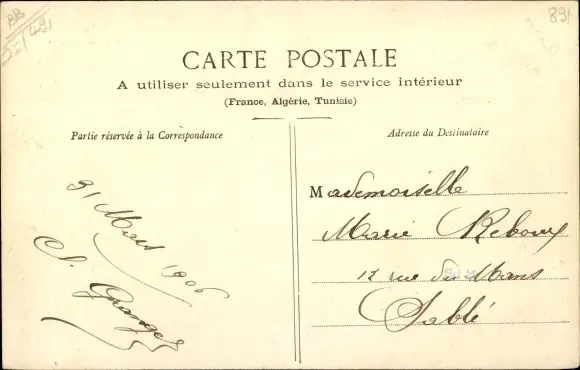 891
CARTE POSTALE
A utiliser seulement dans le service intérieur
(France, Algérie, Tunisie)
Partie réservée à la Correspondance
31 Mars 1906
S. Granger
Adresse du Destinataire
Mademoiselle
Marie Reboux
12 rue du Mans
Sablé